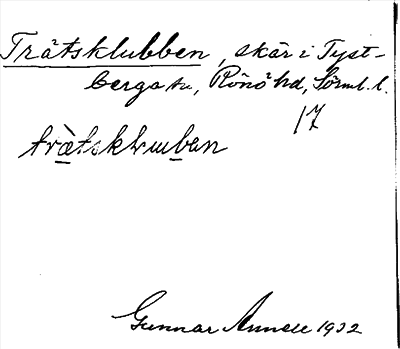 Trätsklubben, skär i Tyst-
berga sn, Rönö hd, Sörml. l.
17
tràtsklubban
Gunnar Annell 1932